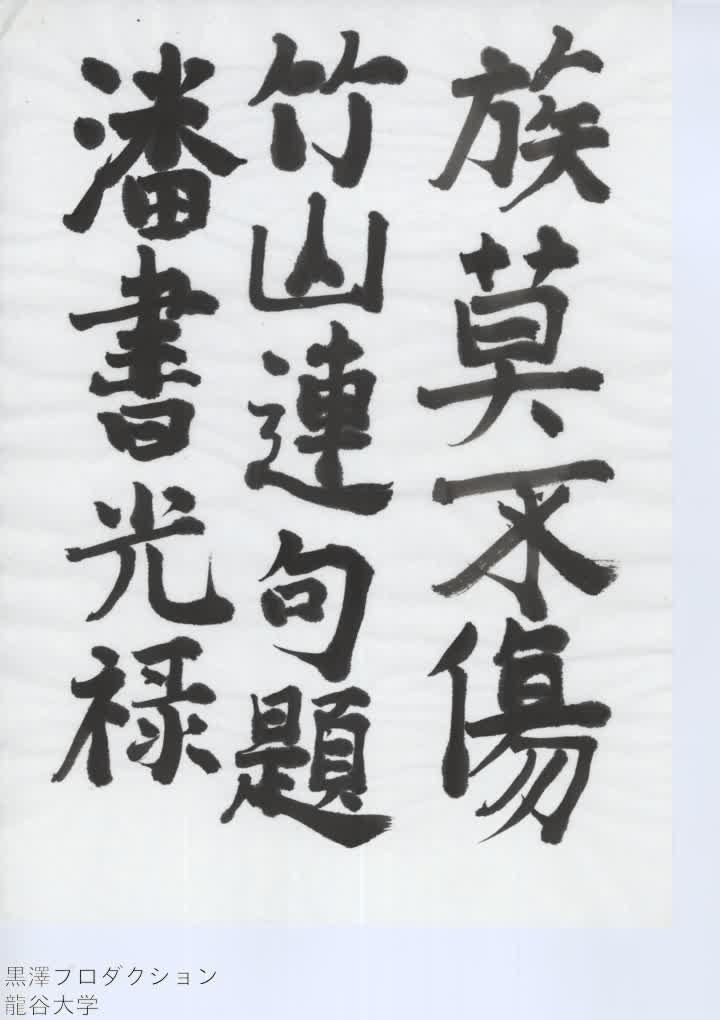 族莫不傷
竹山連句題
潘書光禄
黒澤プロダクション
龍谷大学